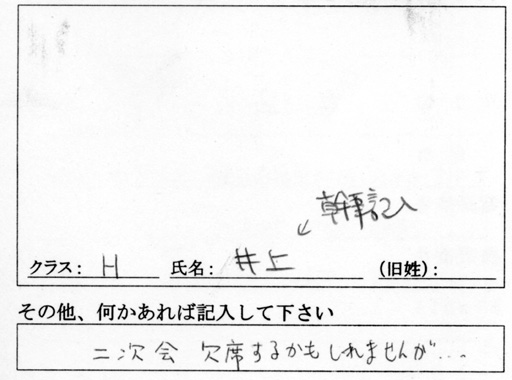 幹事記入
クラス: H 氏名: 井上 (旧姓):
その他、何かあれば記入して下さい
二次会 欠席するかもしれませんが…。